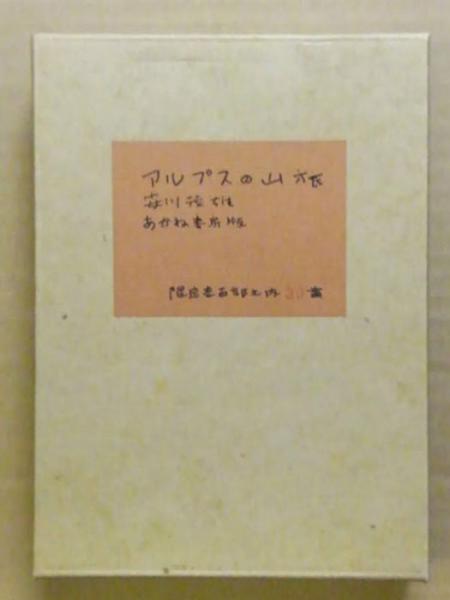 アルプスの山旅
安川茂雄
あかね書房版
限定壱百部之内 30 番